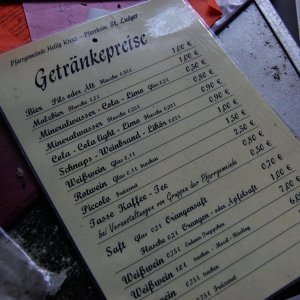 Pfarrgemeinde Heilig Kreuz - Pfarrheim St. Ludger
Getränkepreise
Bier Pils oder Alt Flasche 0,33 l 1,00 €
Malzbier Flasche 0,33 l 1,00 €
Mineralwasser - Cola - Limo Glas 0,2 l 0,50 €
Mineralwasser Flasche 0,5 l 0,90 €
Cola - Cola light - Limo Flasche 0,5 l 0,90 €
Schnaps - Weinbrand - Likör 2 cl 1,00 €
Weißwein Glas 0,1 l 1,50 €
Rotwein Glas 0,1 l trocken 2,50 €
Piccolo Freixenet 0,50 €
Tasse Kaffee - Tee 0,50 €
bei Veranstaltungen von Gruppen der Pfarrgemeinde
Saft Glas 0,2 l Orangensaft 0,70 €
Flasche 0,2 l Orangen- oder Apfelsaft 1,00 €
Weißwein 0,75 l trocken 7,00 €
Weißwein 1,0 l trocken - Riesling
Weißwein 0,75 l trocken
0,75 l Freixenet